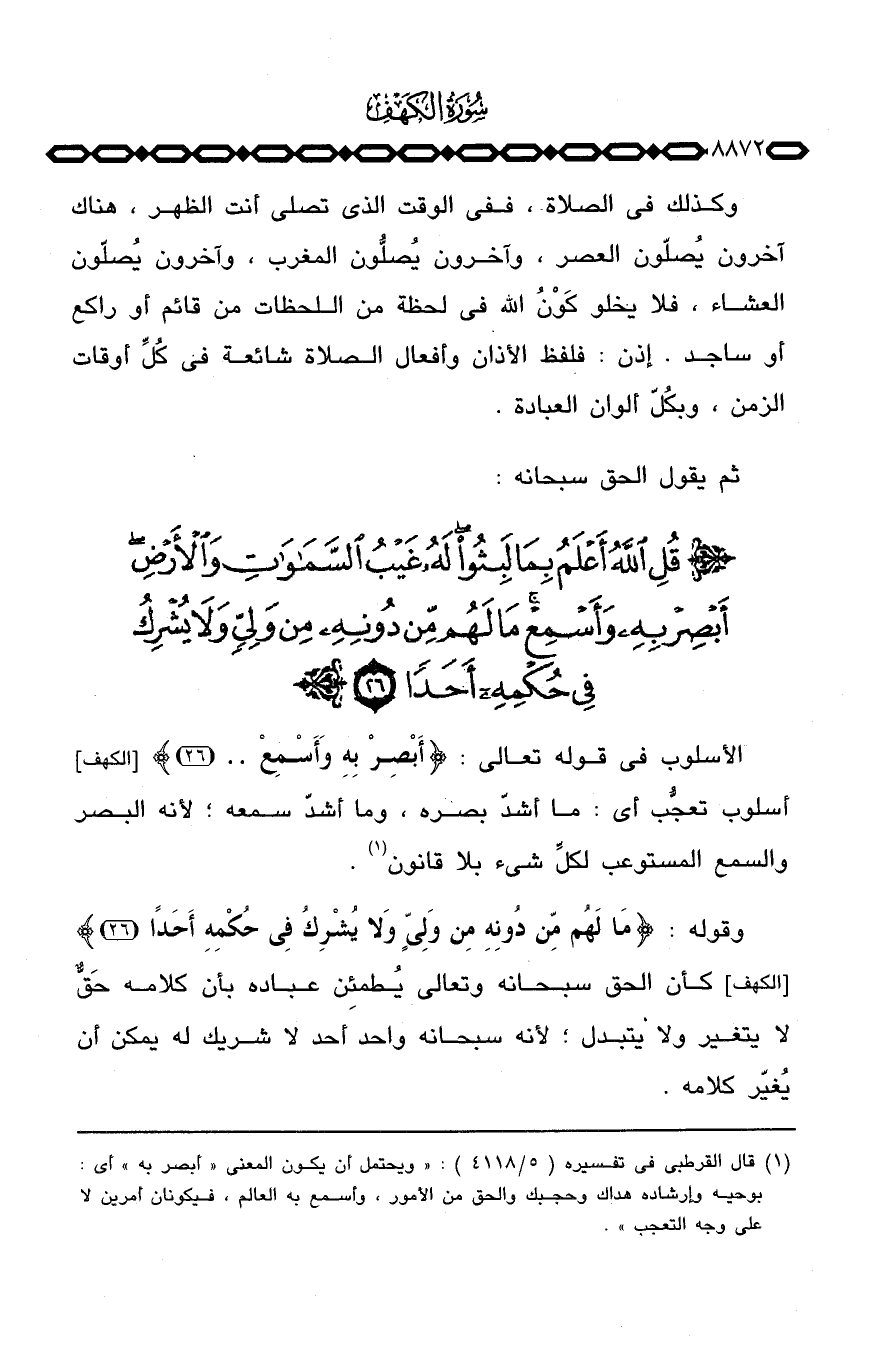 سُورَةُ الكَهْفِ
٨٨٧٢
وكذلك فى الصلاة ، ففى الوقت الذى تصلى أنت الظهر ، هناك
آخرون يُصلّون العصر ، وآخرون يُصلُّون المغرب ، وآخرون يُصلّون
العشاء ، فلا يخلو كَوْنُ الله فى لحظة من اللحظات من قائم أو راكع
أو ساجد . إذن : فلفظ الأذان وأفعال الصلاة شائعة فى كُلِّ أوقات
الزمن ، وبكُلّ ألوان العبادة .
ثم يقول الحق سبحانه :
قُلِ ٱللَّهُ أَعْلَمُ بِمَا لَبِثُواْ ۖ لَهُۥ غَيْبُ ٱلسَّمَٰوَٰتِ وَٱلْأَرْضِ ۖ
أَبْصِرْ بِهِۦ وَأَسْمِعْ ۚ مَا لَهُم مِّن دُونِهِۦ مِن وَلِىٍّ وَلَا يُشْرِكُ
فِى حُكْمِهِۦٓ أَحَدًا ٢٦
الأسلوب فى قوله تعالى : ﴿ أَبْصِرْ بِهِ وَأَسْمِعْ .. (٢٦) ﴾ [الكهف]
أسلوب تعجُّب أى : ما أشدّ بصره ، وما أشدّ سمعه ؛ لأنه البصر
والسمع المستوعب لكلِّ شىء بلا قانون(١) .
وقوله : ﴿ مَا لَهُم مِّن دُونِهِ مِن وَلِىٍّ وَلا يُشْرِكُ فِى حُكْمِهِ أَحَدًا (٢٦) ﴾
[الكهف] كأن الحق سبحانه وتعالى يُطمئِن عباده بأن كلامه حَقٌّ
لا يتغير ولا يتبدل ؛ لأنه سبحانه واحد أحد لا شريك له يمكن أن
يُغيّر كلامه .
(١) قال القرطبى فى تفسيره ( ٤١١٨/٥ ) : « ويحتمل أن يكون المعنى « أبصر به » أى :
بوحيه وإرشاده هداك وحججك والحق من الأمور ، وأسمع به العالم ، فيكونان أمرين لا
على وجه التعجب » .